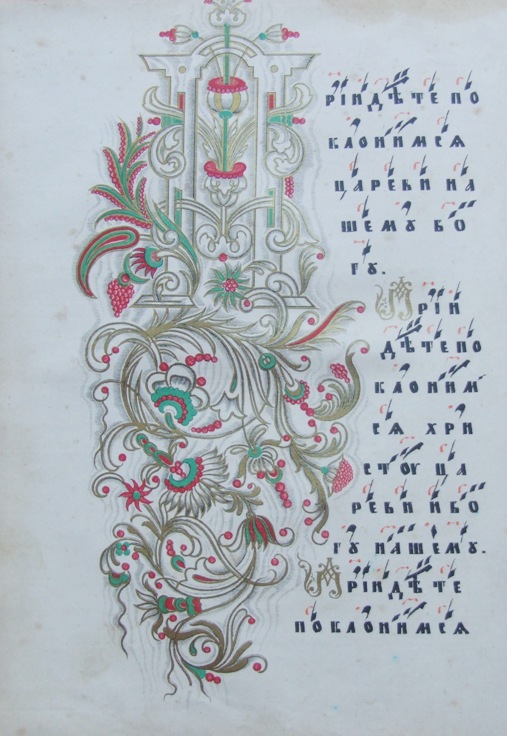 рїидѣте по
клонимсѧ
цареви на
шемꙋ бо
гꙋ.
Прїи
дѣте по
клоним
сѧ хри
стоу ца
реви и бо
гꙋ нашемꙋ.
Прїидѣте
поклонимсѧ